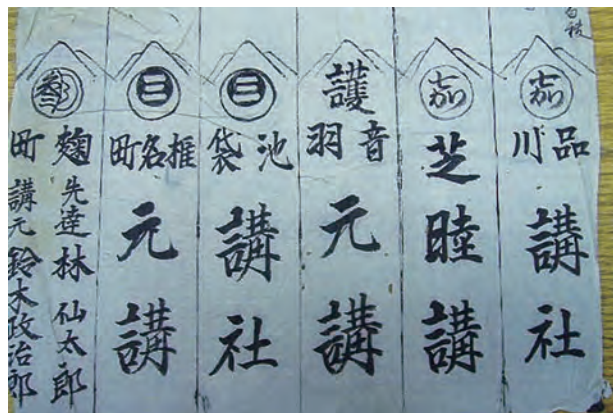 品川
講社
芝睦講
護
音羽
元講
三
池袋
講社
三
椎名町
元講
参
麹町
先達 林 仙太郎
講元 鈴木政治郎